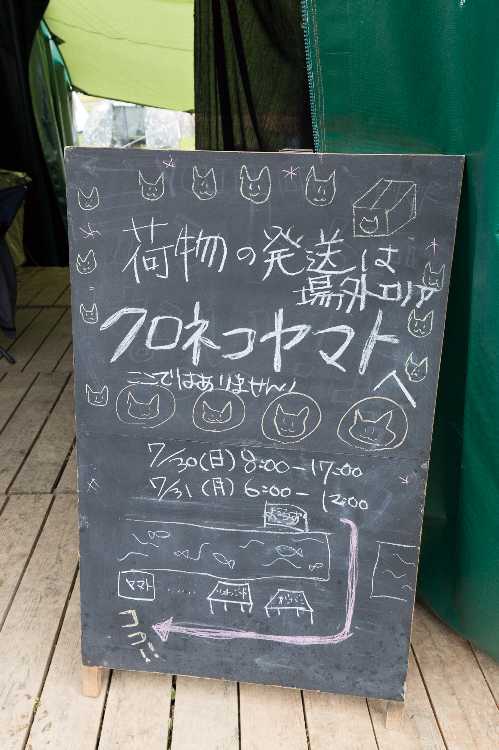 荷物の発送は
場外エリア
クロネコヤマトへ
ここではありません!
7/30(日) 8:00-17:00
7/31(月) 6:00-12:00
ヤマト
ココ!!